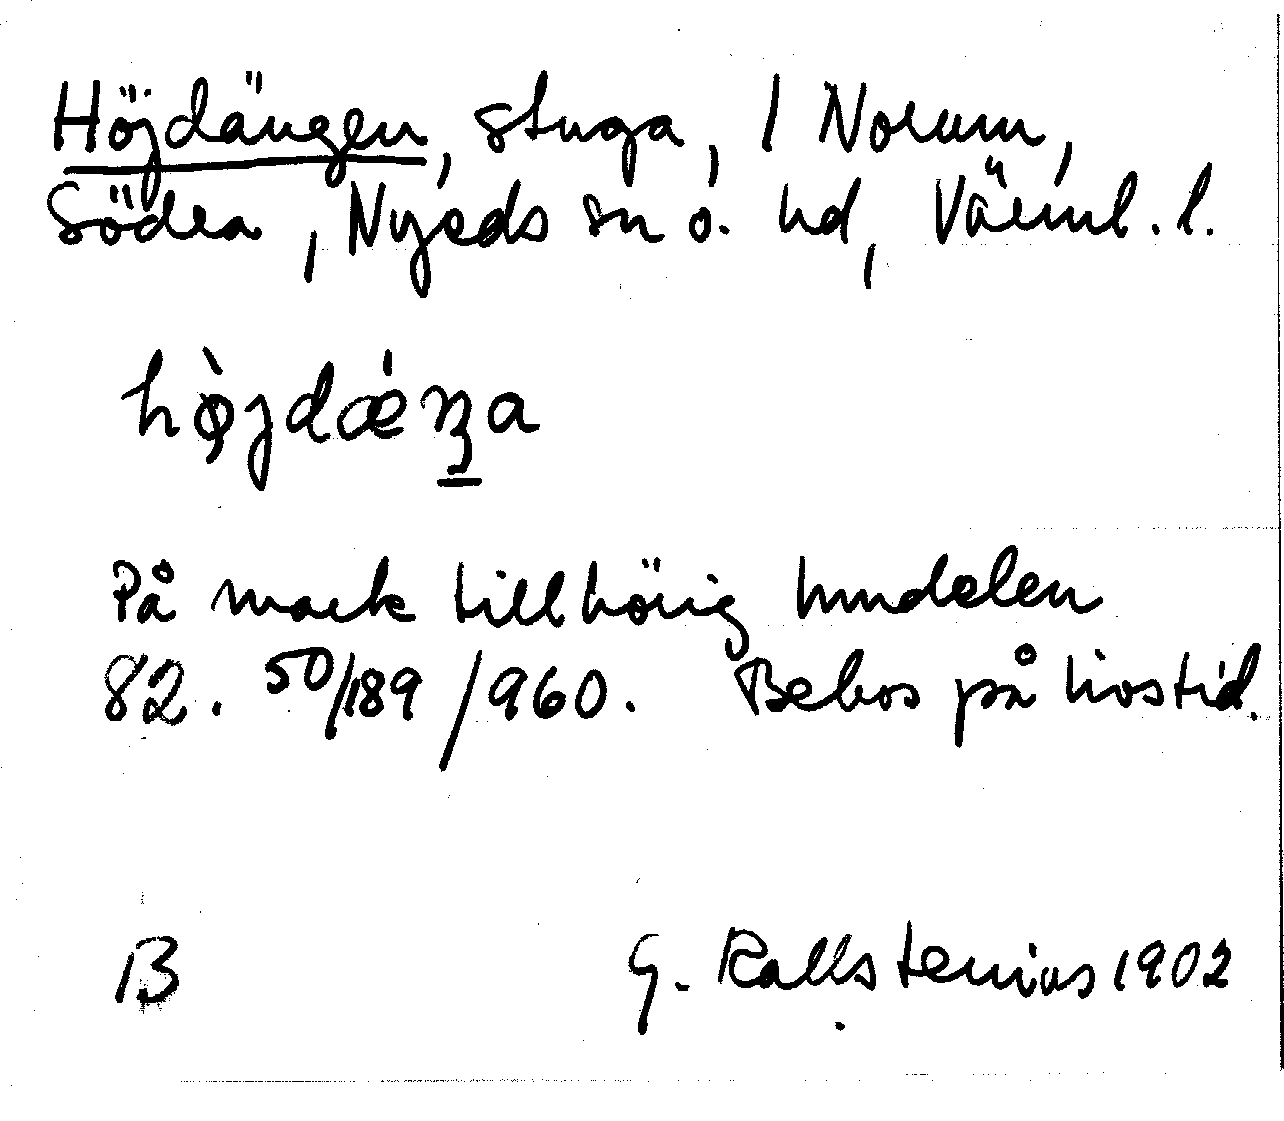 Höjdängen, stuga, / Norum,
Södra, Nyeds sn o. hd, Värml. l.
hø̀jdǽŋa
På mark tillhörig hemdelen
82. 50/189/960. Bebos på livstid.
B G. Kallstenius 1902